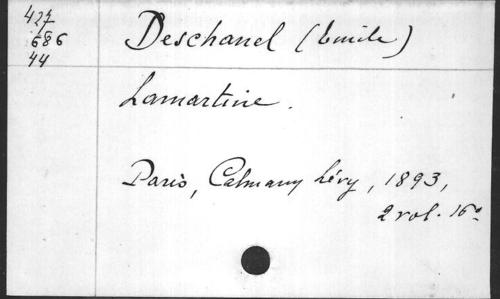 427
686
44
Deschanel (Emile)
Lamartine.
Paris, Calmann Lévy, 1893,
2 vol. 16º